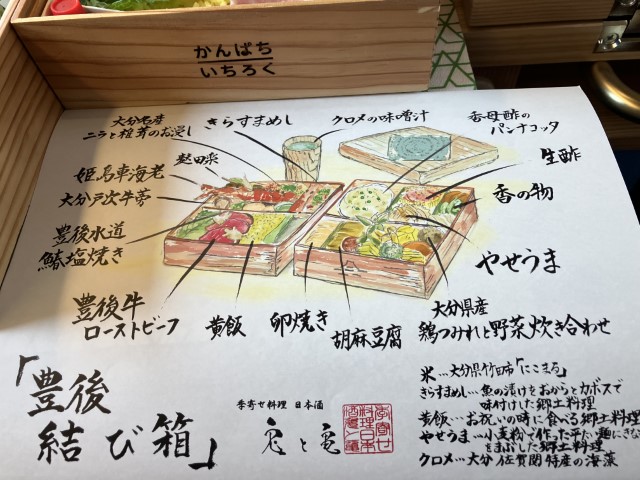 かんぱち
いちろく
大分名産
ニラと椎茸のお浸し
きらすまめし
クロメの味噌汁
香母酢の
パンナコッタ
姫島車海老
生酢
大分戸次牛蒡
香の物
豊後水道
鰆塩焼き
やせうま
豊後牛
ローストビーフ
黄飯
卵焼き
胡麻豆腐
大分県産
鶏つみれと野菜炊き合わせ
「豊後
結び箱」
季寄せ料理 日本酒
兎と亀
米…大分県竹田市「にこまる」
きらすまめし…魚の漬けをおからとカボスで
味付けした郷土料理
黄飯…お祝いの時に食べる郷土料理
やせうま…小麦粉で作った平たい麺にきな
をまぶした郷土料理
クロメ…大分 佐賀関 特産の海藻